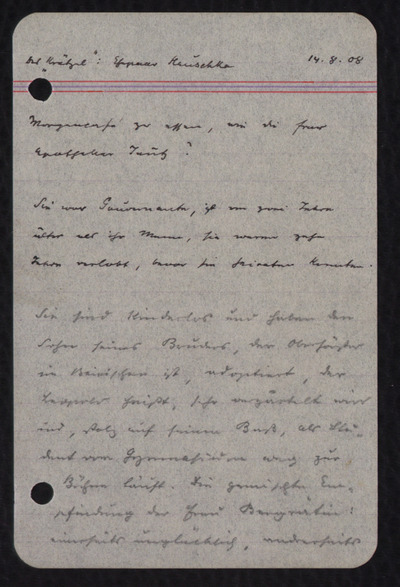 Das "Krätzel": Ehepaar Keuschka 14.8.08
Morgencafé zu essen, wie die Frau
Apotheker Tautz?
Sie war Gouvernante, ist um zwei Jahre
älter als ihr Mann, sie waren zehn
Jahre verlobt, bevor sie heiraten konnten.
Sie sind Kinderlos und haben den
Sohn seines Bruders, der Oberförster
im Bairischen ist, adoptiert, der
Leopold heißt, sehr verzärtelt wird
und, stolz auf seinen Baß, als
dent vom Gymnasium weg zur
Bühne läuft. Die gemischte Em-
pfindung der Frau Bergrätin:
einerseits unglücklich, andrerseits